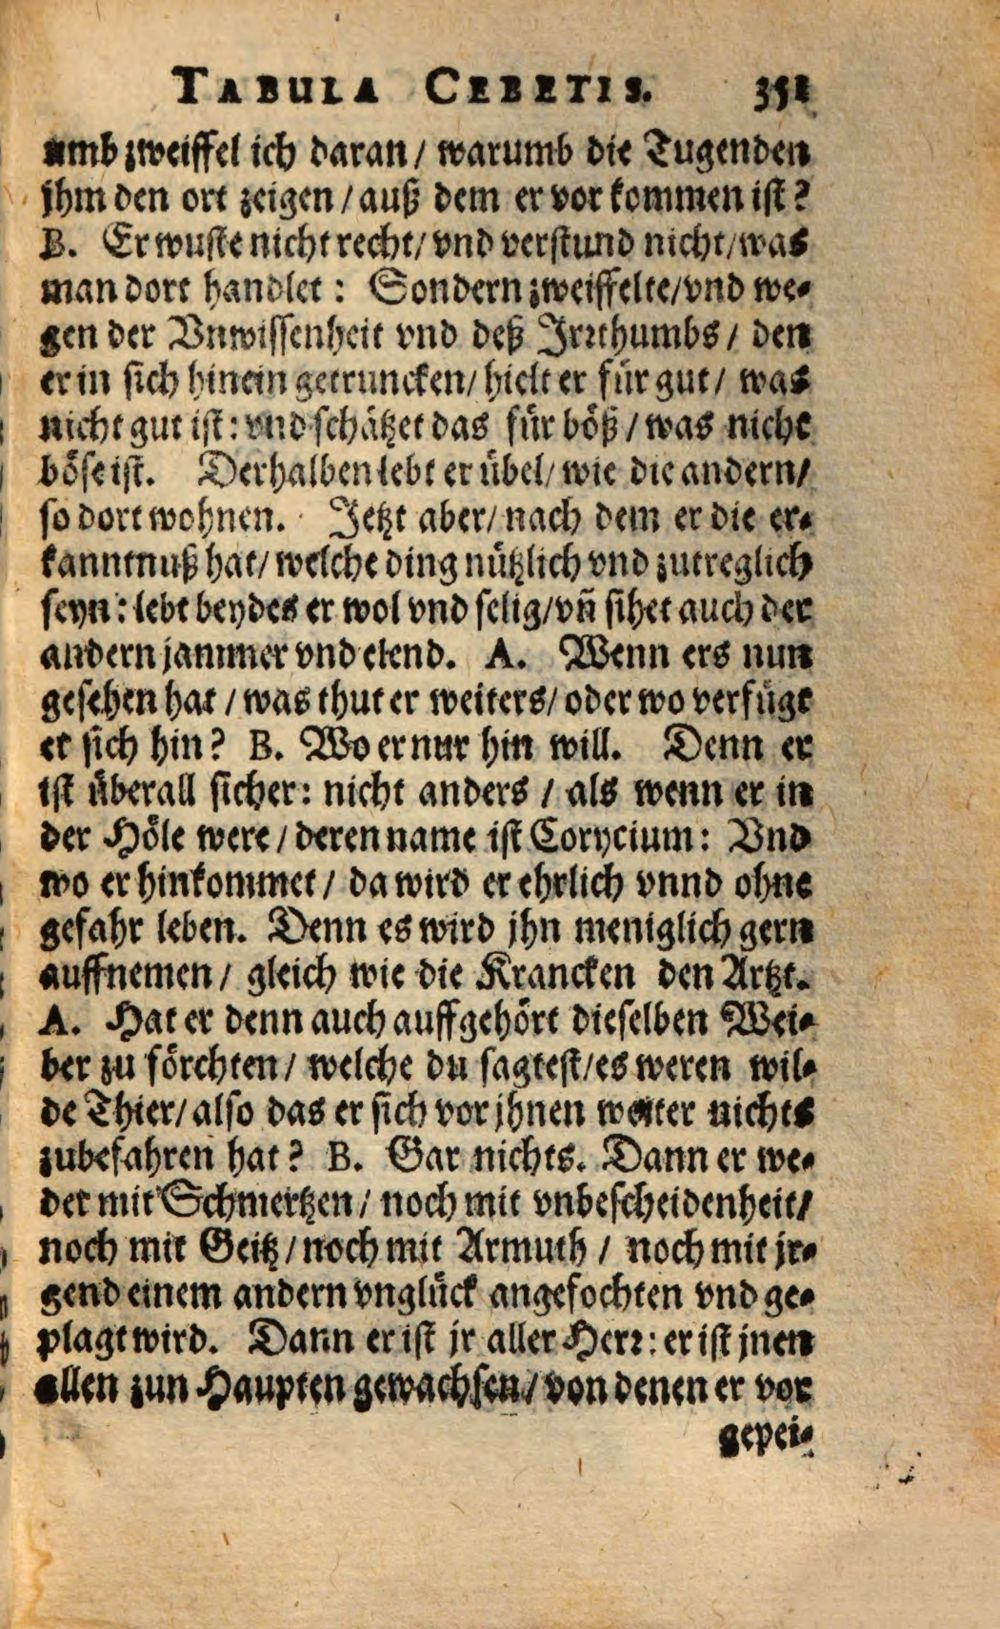 TABULA CEBETIS. 351
umb zweiffel ich daran / warumb die Tugenden
jhm den ort zeigen / auß dem er vor kommen ist?
B. Er wuste nicht recht / vnd verstund nicht / was
man dort handlet: Sondern zweiffelte / vnd we-
gen der Vnwissenheit vnd deß Jrꝛthumbs / den
er in sich hinein getruncken / hielt er für gut / was
nicht gut ist: vnd schätzet das für böß / was nicht
böse ist. Derhalben lebt er übel / wie die andern /
so dort wohnen. Jetzt aber / nach dem er die er-
kanntnuß hat / welche ding nützlich vnd zutreglich
seyn: lebt beydes er wol vnd selig / vñ sihet auch der
andern jammer vnd elend. A. Wenn ers nun
gesehen hat / was thut er weiters / oder wo verfügt
er sich hin? B. Wo er nur hin will. Denn er
ist überall sicher: nicht anders / als wenn er in
der Höle were / deren name ist Corycium: Vnd
wo er hinkommet / da wird er ehrlich vnnd ohne
gefahr leben. Denn es wird jhn meniglich gern
auffnemen / gleich wie die Krancken den Artzt.
A. Hat er denn auch auffgehört dieselben Wei-
ber zu förchten / welche du sagtest / es weren wil-
de Thier / also das er sich vor jhnen weiter nichts
zubefahren hat? B. Gar nichts. Dann er we-
der mit Schmertzen / noch mit vnbescheidenheit /
noch mit Geitz / noch mit Armuth / noch mit jr-
gend einem andern vnglück angefochten vnd ge-
plagt wird. Dann er ist jr aller Herꝛ: er ist jnen
allen zun Haupten gewachsen / von denen er vor
gepei-